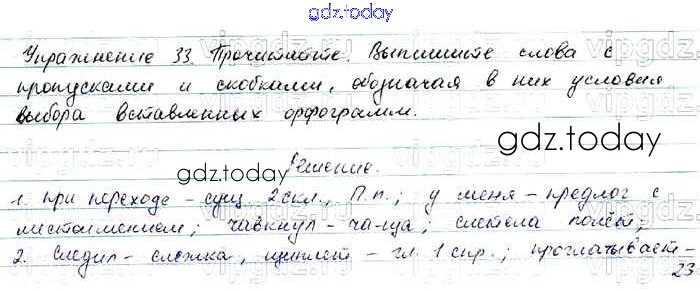 gdz.today
Упражнение 33. Прочитайте. Выпишите слова с
пропусками и скобками, обозначая в них условия
выбора вставленных орфограмм.
gdz.today
gdz.today
Решение.
1. при переходе – сущ. 2 скл., П.п.; у меня – предлог с
местоимением; чавкнул – ча-ща; слетела полёт;
2. Следил – слежка, щиплет – гл. 1 спр.; проглатывает –
23